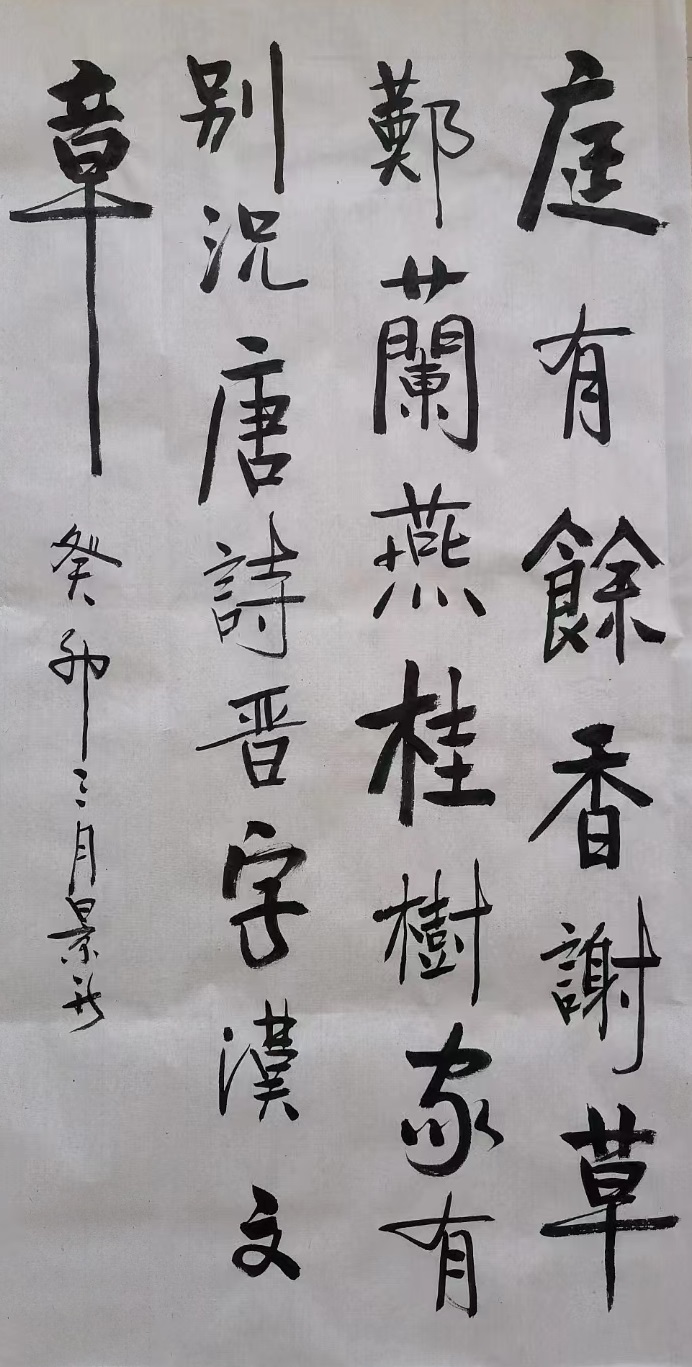 庭有餘香謝草
鄭蘭燕桂樹家有
别況唐詩晋字漢文
章
癸卯三月景